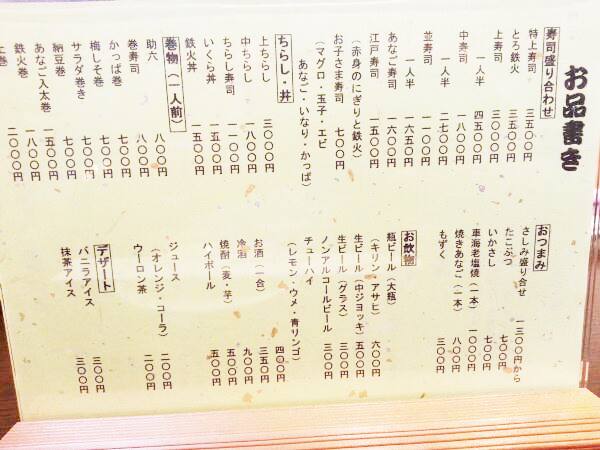 お品書き
寿司盛り合わせ
特上寿司 三五〇〇円
とろ鉄火 三五〇〇円
上寿司 三〇〇〇円
一人半 四五〇〇円
中寿司 一八〇〇円
一人半 二七〇〇円
並寿司 一一〇〇円
一人半 一六五〇円
あなご寿司 一六〇〇円
江戸寿司 一五〇〇円
(赤身のにぎりと鉄火)
お子さま寿司 七〇〇円
(マグロ・玉子・エビ
あなご・いなり・かっぱ)
ちらし・丼
上ちらし 三〇〇〇円
中ちらし 一八〇〇円
ちらし寿司 一一〇〇円
いくら丼 一五〇〇円
鉄火丼 一五〇〇円
巻物(一人前)
助六 八〇〇円
巻寿司 八〇〇円
かっぱ巻 七〇〇円
梅しそ巻 七〇〇円
サラダ巻き 七〇〇円
納豆巻 七〇〇円
あなご入太巻 一五〇〇円
鉄火巻 一八〇〇円
二〇〇〇円
おつまみ
さしみ盛り合せ 一三〇〇円から
たこぶつ 七〇〇円
いかさし 七〇〇円
車海老塩焼(一本) 一〇〇〇円
焼きあなご(一本) 八〇〇円
もずく 三〇〇円
お飲物
瓶ビール(大瓶) 六〇〇円
(キリン・アサヒ)
生ビール(中ジョッキ) 五〇〇円
生ビール(グラス) 三〇〇円
ノンアルコールビール 三〇〇円
チューハイ 四〇〇円
(レモン・ウメ・青リンゴ)
お酒(一合) 三五〇円
冷酒 九〇〇円
焼酎(麦・芋) 五〇〇円
ハイボール 五〇〇円
ジュース 二〇〇円
(オレンジ・コーラ)
ウーロン茶 二〇〇円
デザート
バニラアイス 三〇〇円
抹茶アイス 三〇〇円